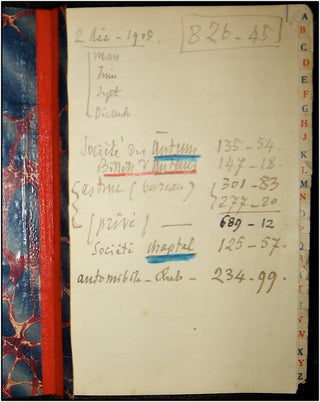 2 Déc - 1908.
826-45
Mars
Juin
Sept
Décemb
Société du Autum 135-54.
147-18.
Gastine (bureau) 301-83
277-20
(privé) — 689-12
Société chaptal 125-57.
automobile-Club- 234-99.
A
B
C
D
E
F
G
H
J
K
L
M
N
O
P
Q
R
S
T
U
V
W
X
Y
Z